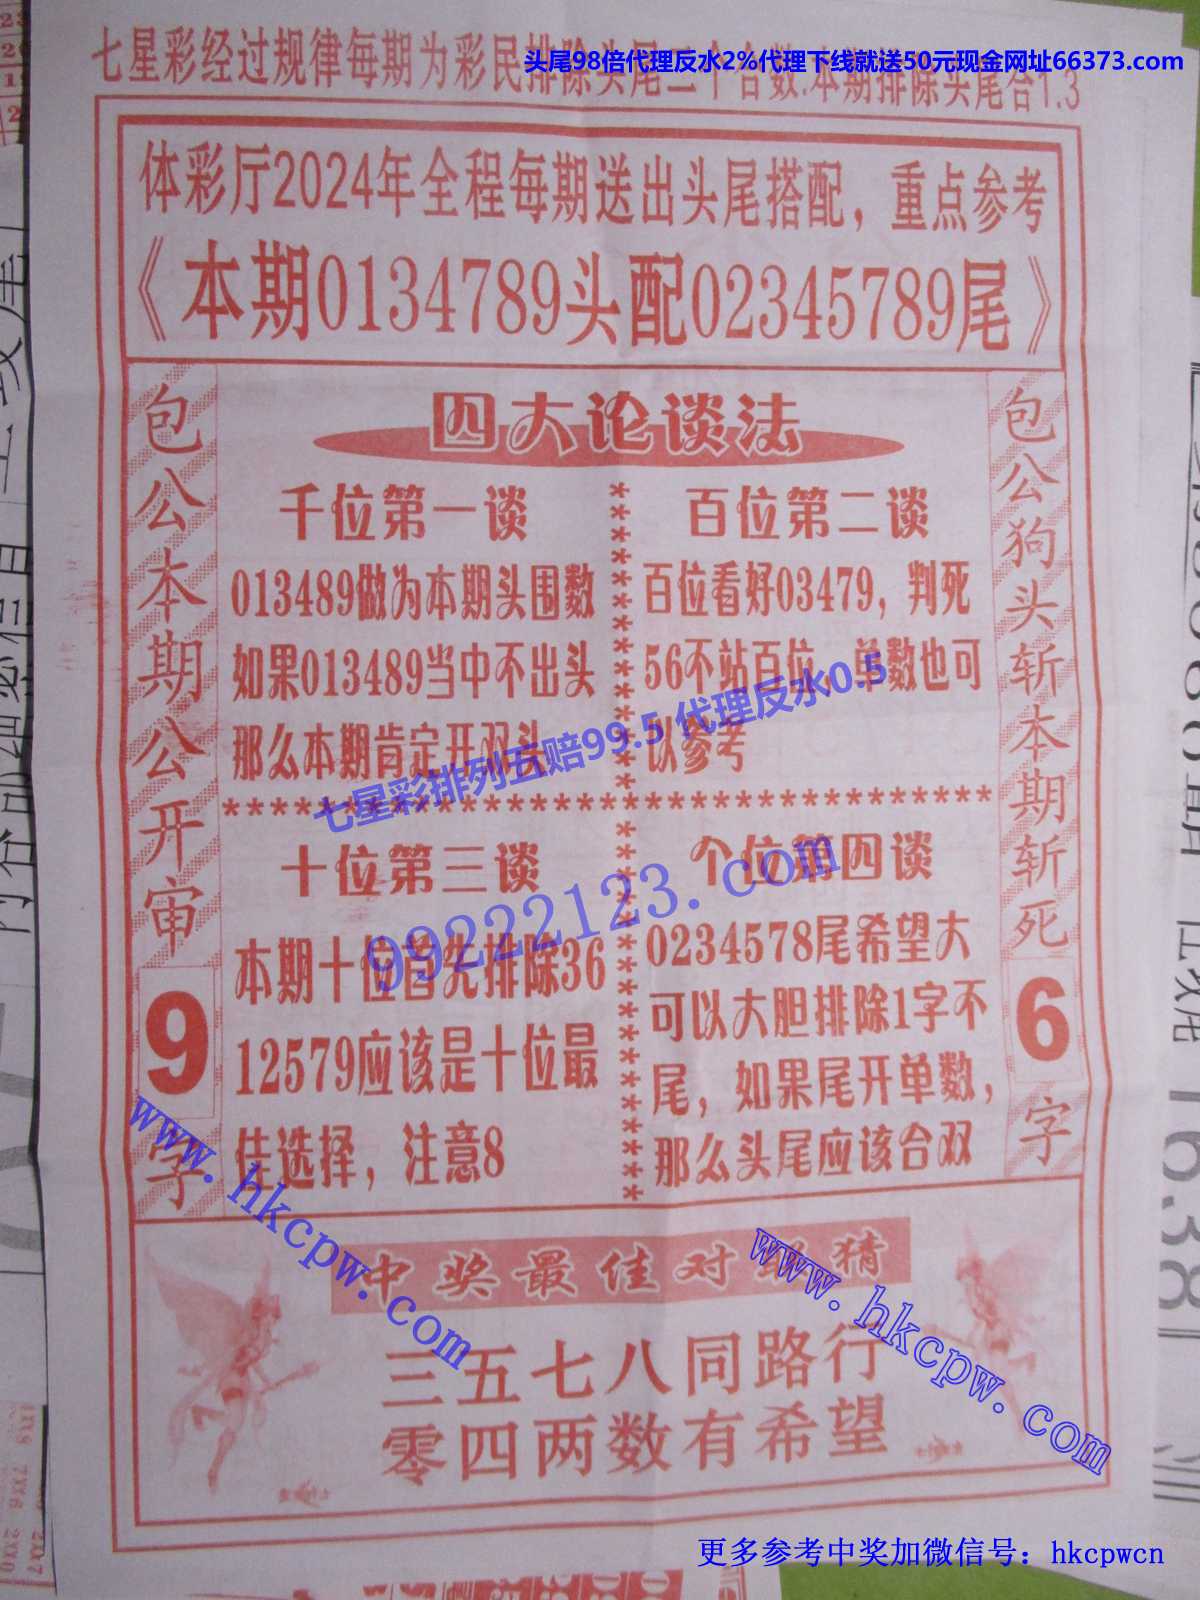 头尾98倍代理反水2%代理下线就送50元现金网址66373.com
七星彩经过规律每期为彩民排除头尾二个合数.本期排除头尾合1.3
体彩厅2024年全程每期送出头尾搭配，重点参考
《本期0134789头配02345789尾》
包公本期公开审9字
四大论谈法
千位第一谈
013489做为本期头围数
如果013489当中不出头
那么本期肯定开双头
百位第二谈
百位看好03479，判死
56不站百位，单数也可
以参考
七星彩排列五赔99.5 代理反水0.5
99222123.com
十位第三谈
本期十位首先排除36
12579应该是十位最
佳选择，注意8
个位第四谈
0234578尾希望大
可以大胆排除1字不
尾，如果尾开单数，
那么头尾应该合双
包公狗头斩本期斩死6字
www.hkcpw.com
www.hkcpw.com
中奖最佳对错猜
三五七八同路行
零四两数有希望
更多参考中奖加微信号：hkcpwcn